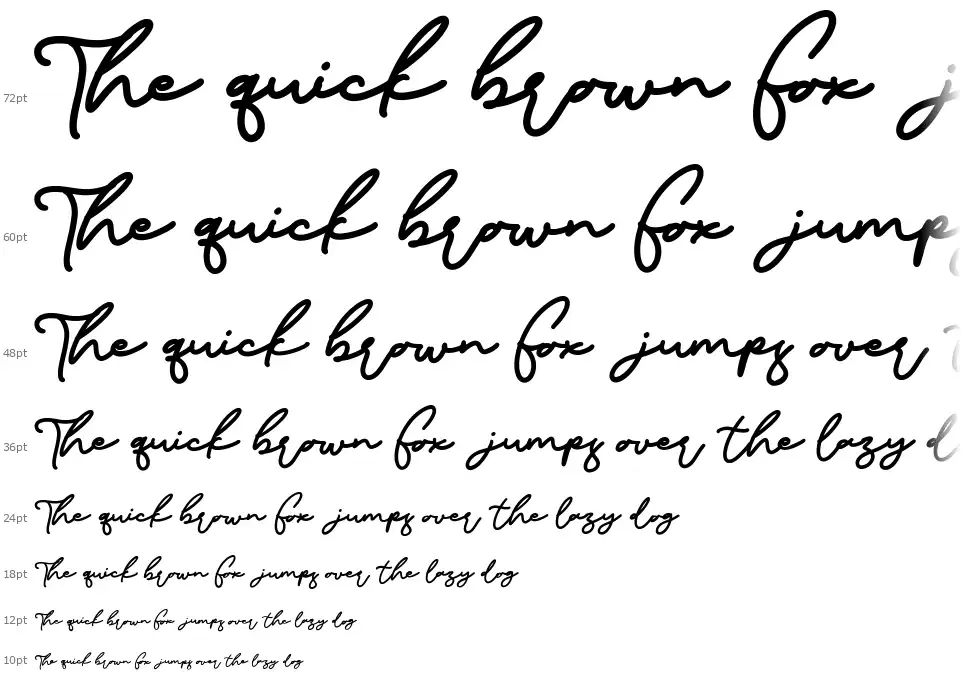 72pt The quick brown fox j
60pt The quick brown fox jump
48pt The quick brown fox jumps over
36pt The quick brown fox jumps over the lazy d
24pt The quick brown fox jumps over the lazy dog
18pt The quick brown fox jumps over the lazy dog
12pt The quick brown fox jumps over the lazy dog
10pt The quick brown fox jumps over the lazy dog